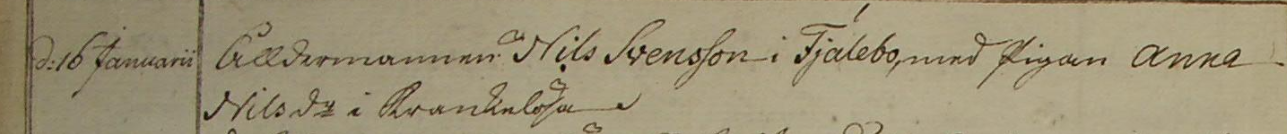 d: 16 JanuariiÅlldermannen Nils Svensson i Tjälebo, med Pigan Anna
Nils dr i Krankelösa